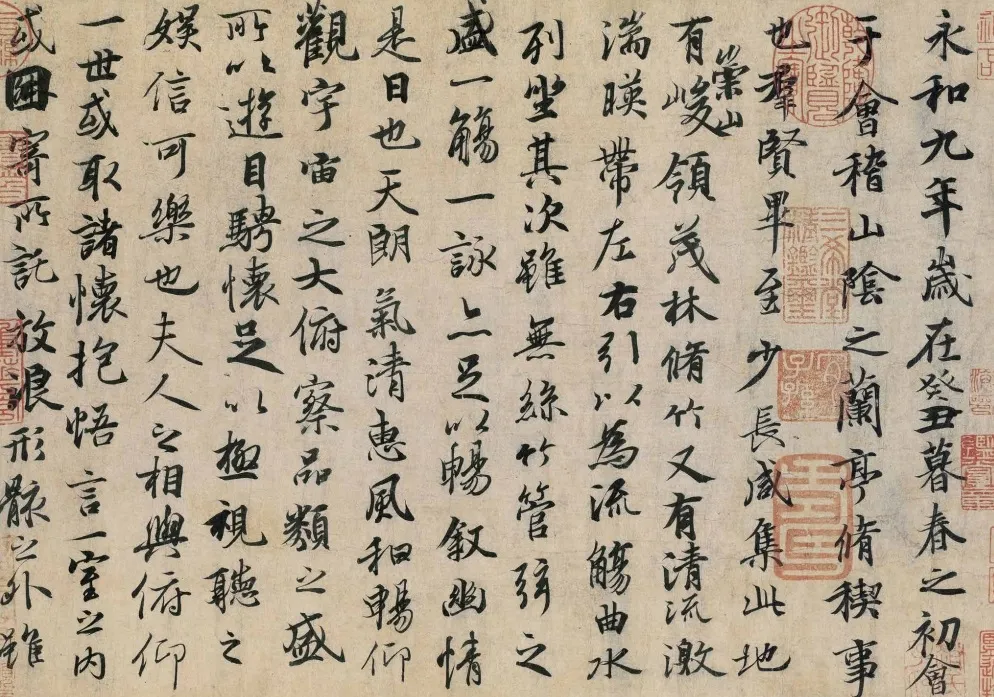 永和九年歲在癸丑暮春之初會
于會稽山陰之蘭亭脩稧事
也羣賢畢至少長咸集此地
有崇山峻領茂林脩竹又有清流激
湍暎帶左右引以為流觴曲水
列坐其次雖無絲竹管弦之
盛一觴一詠亦足以暢敘幽情
是日也天朗氣清惠風和暢仰
觀宇宙之大俯察品類之盛
所以遊目騁懷足以極視聽之
娛信可樂也夫人之相與俯仰
一世或取諸懷抱悟言一室之內
或因寄所託放浪形骸之外雖
三希堂精鑑璽
宜子孫